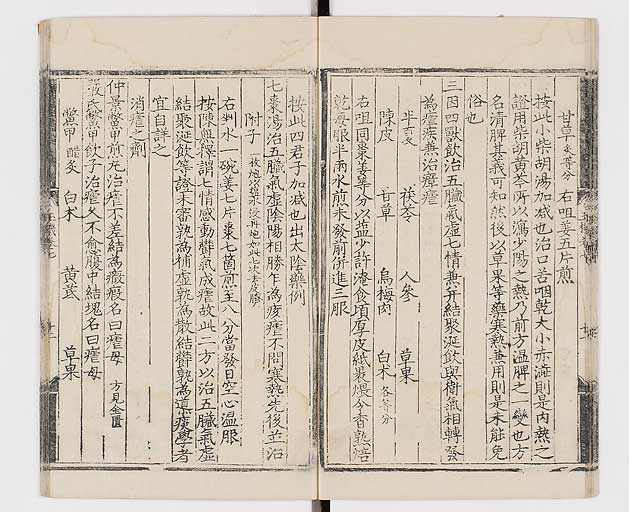 甘草炙等分 右咀姜五片煎
按此小柴胡湯加減也治口苦咽乾大小赤澁則是內熱之
證用柴胡黃芩所以瀉少陽之熱乃前方温脾之一變也方
名清脾其義可知然後以草果等藥寒熱兼用則是未能免
俗也
三因四獸飲治五臟氣虛七情兼并結聚涎飲與衛氣相轉發
為瘧疾兼治瘴瘧
半夏 茯苓 人參 草果
陳皮 甘草 烏梅肉 白朮各等分
右咀同棗姜等分以塩少許淹食頃厚皮紙裹煨令香熟焙
乾每服半兩水煎未發前併進三服
按此四君子加減也出太陰藥例
七棗湯治五臟氣虛陰陽相勝乍為痎瘧不問寒熱先後並治
附子
右剉水一碗姜七片棗七箇煎至八分當發日空心温服
按陳無擇謂七情感動臟氣成瘧故此二方以治五臟氣虛
結聚涎飲等證未審孰為補虛孰為散結欝孰為導痰學者
宜自詳之
消瘧之劑
仲景鱉甲煎丸治瘧不差結為癥瘕名曰瘧母 方見金匱
嚴氏鱉甲飲子治瘧久不愈腹中結塊名曰瘧母
鱉甲醋炙 白朮 黃茋 草果